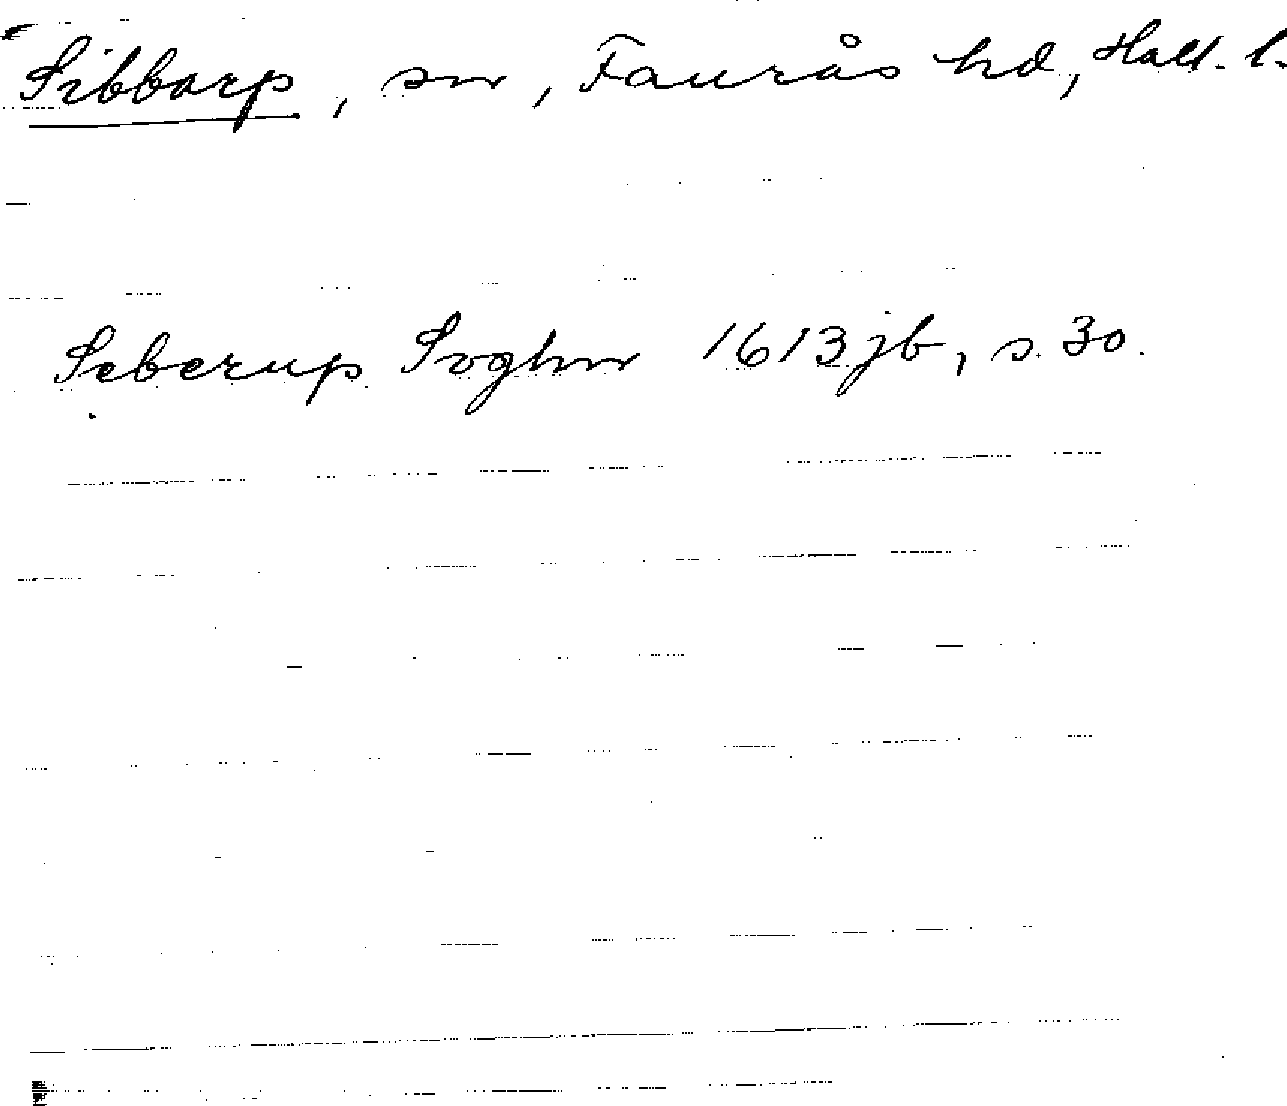 Sibbarp, sn, Faurås hd, Hall. l.
Seberup Soghnn 1613 jb, s. 30.